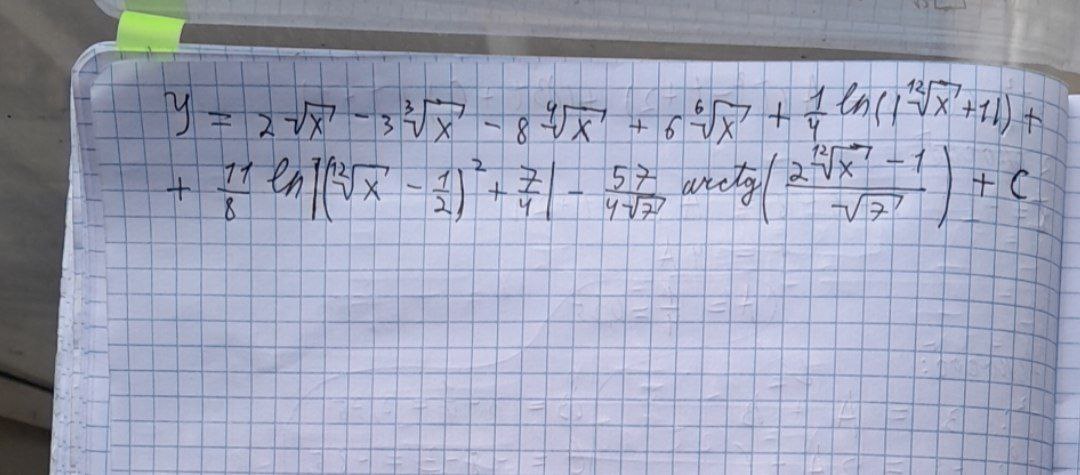 y = 2√x - 3∛x - 8∜x + 6 ⁶√x + 1/4 ln(|¹²√x + 1|) +
+ 11/8 ln|(¹²√x - 1/2)² + 7/4| - 57/(4√7) arctg((2 ¹²√x - 1)/√7) + C